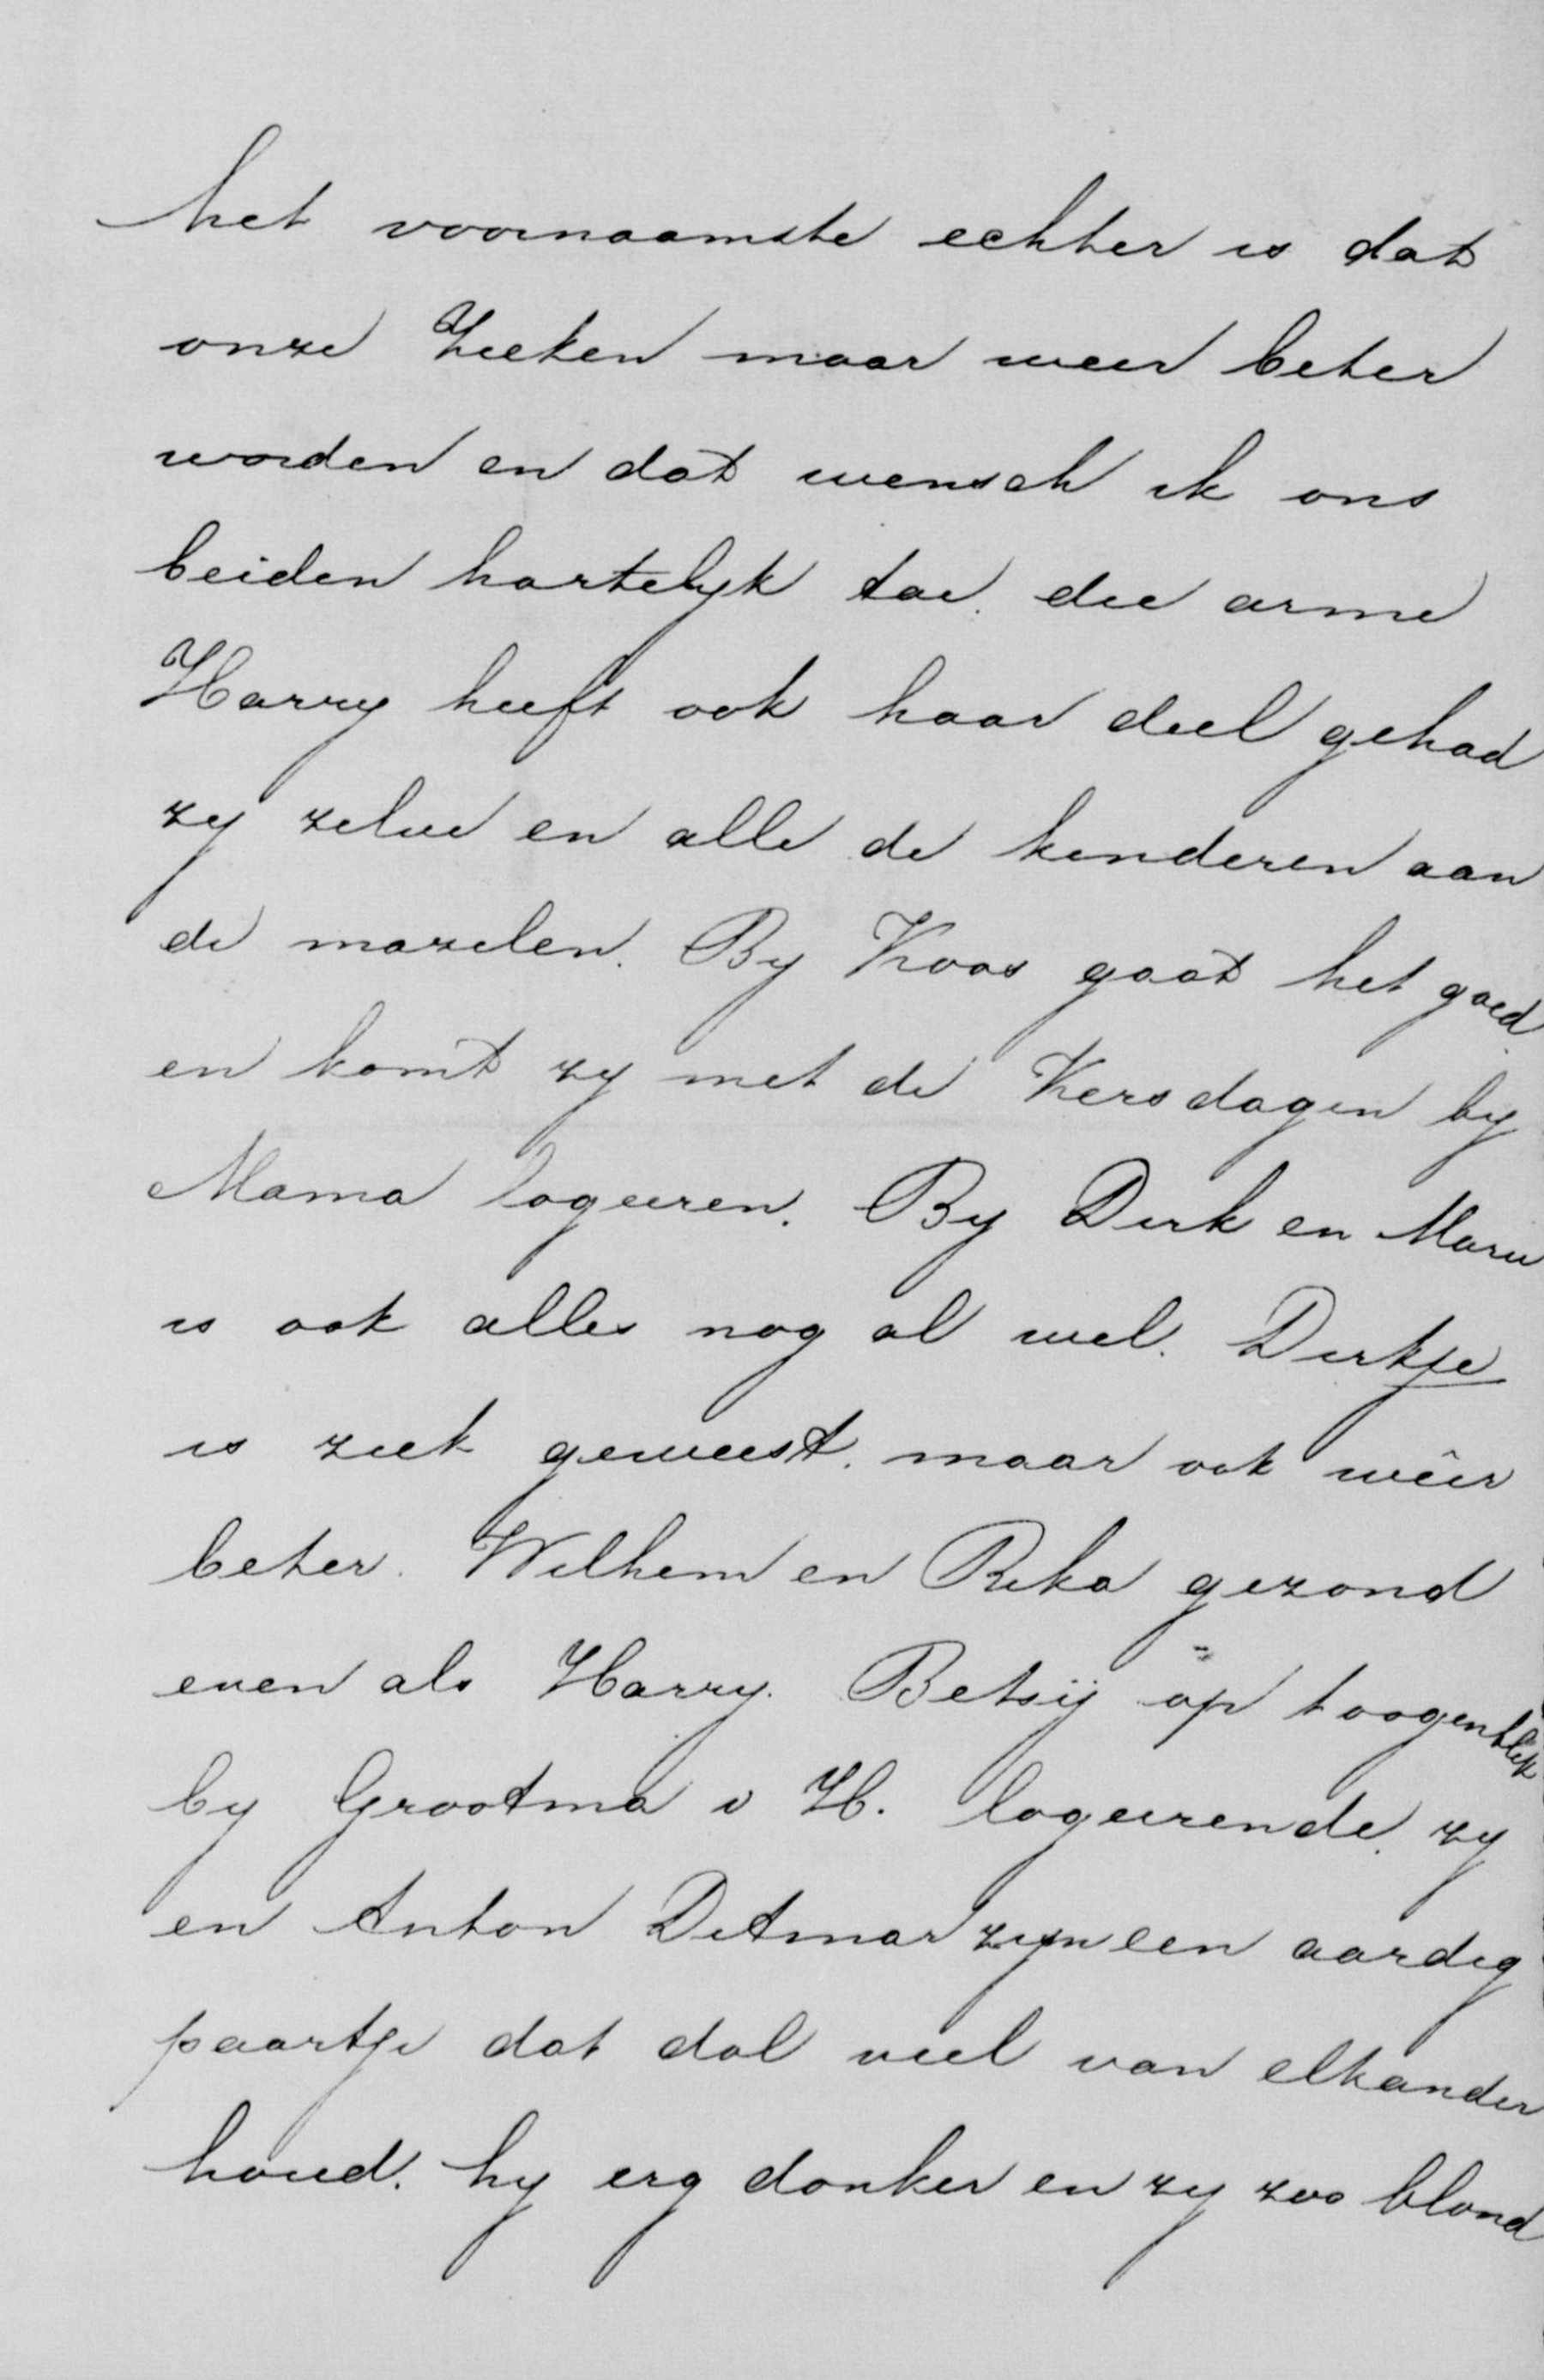 het voornaamste echter is dat
onze Zieken maar weer beter
worden en dat wensch ik ons
beiden hartelyk toe. die arme
Harry heeft ook haar deel gehad
zy zelve en alle de kinderen aan
de mazelen. By Koos gaat het goed
en komt zy met de Kersdagen by
Mama logeeren. By Dirk en Marie
is ook alles nog al wel. Dirkje
is ziek geweest. maar ook wêer
beter. Wilhem en Rika gezond
even als Harry. Betsij op t oogenblik
by Grootma v H. logeerende. zy
en Anton Ditmar zyn een aardig
paartje dat dol veel van elkander
houd. hy erg donker en zy zoo blond